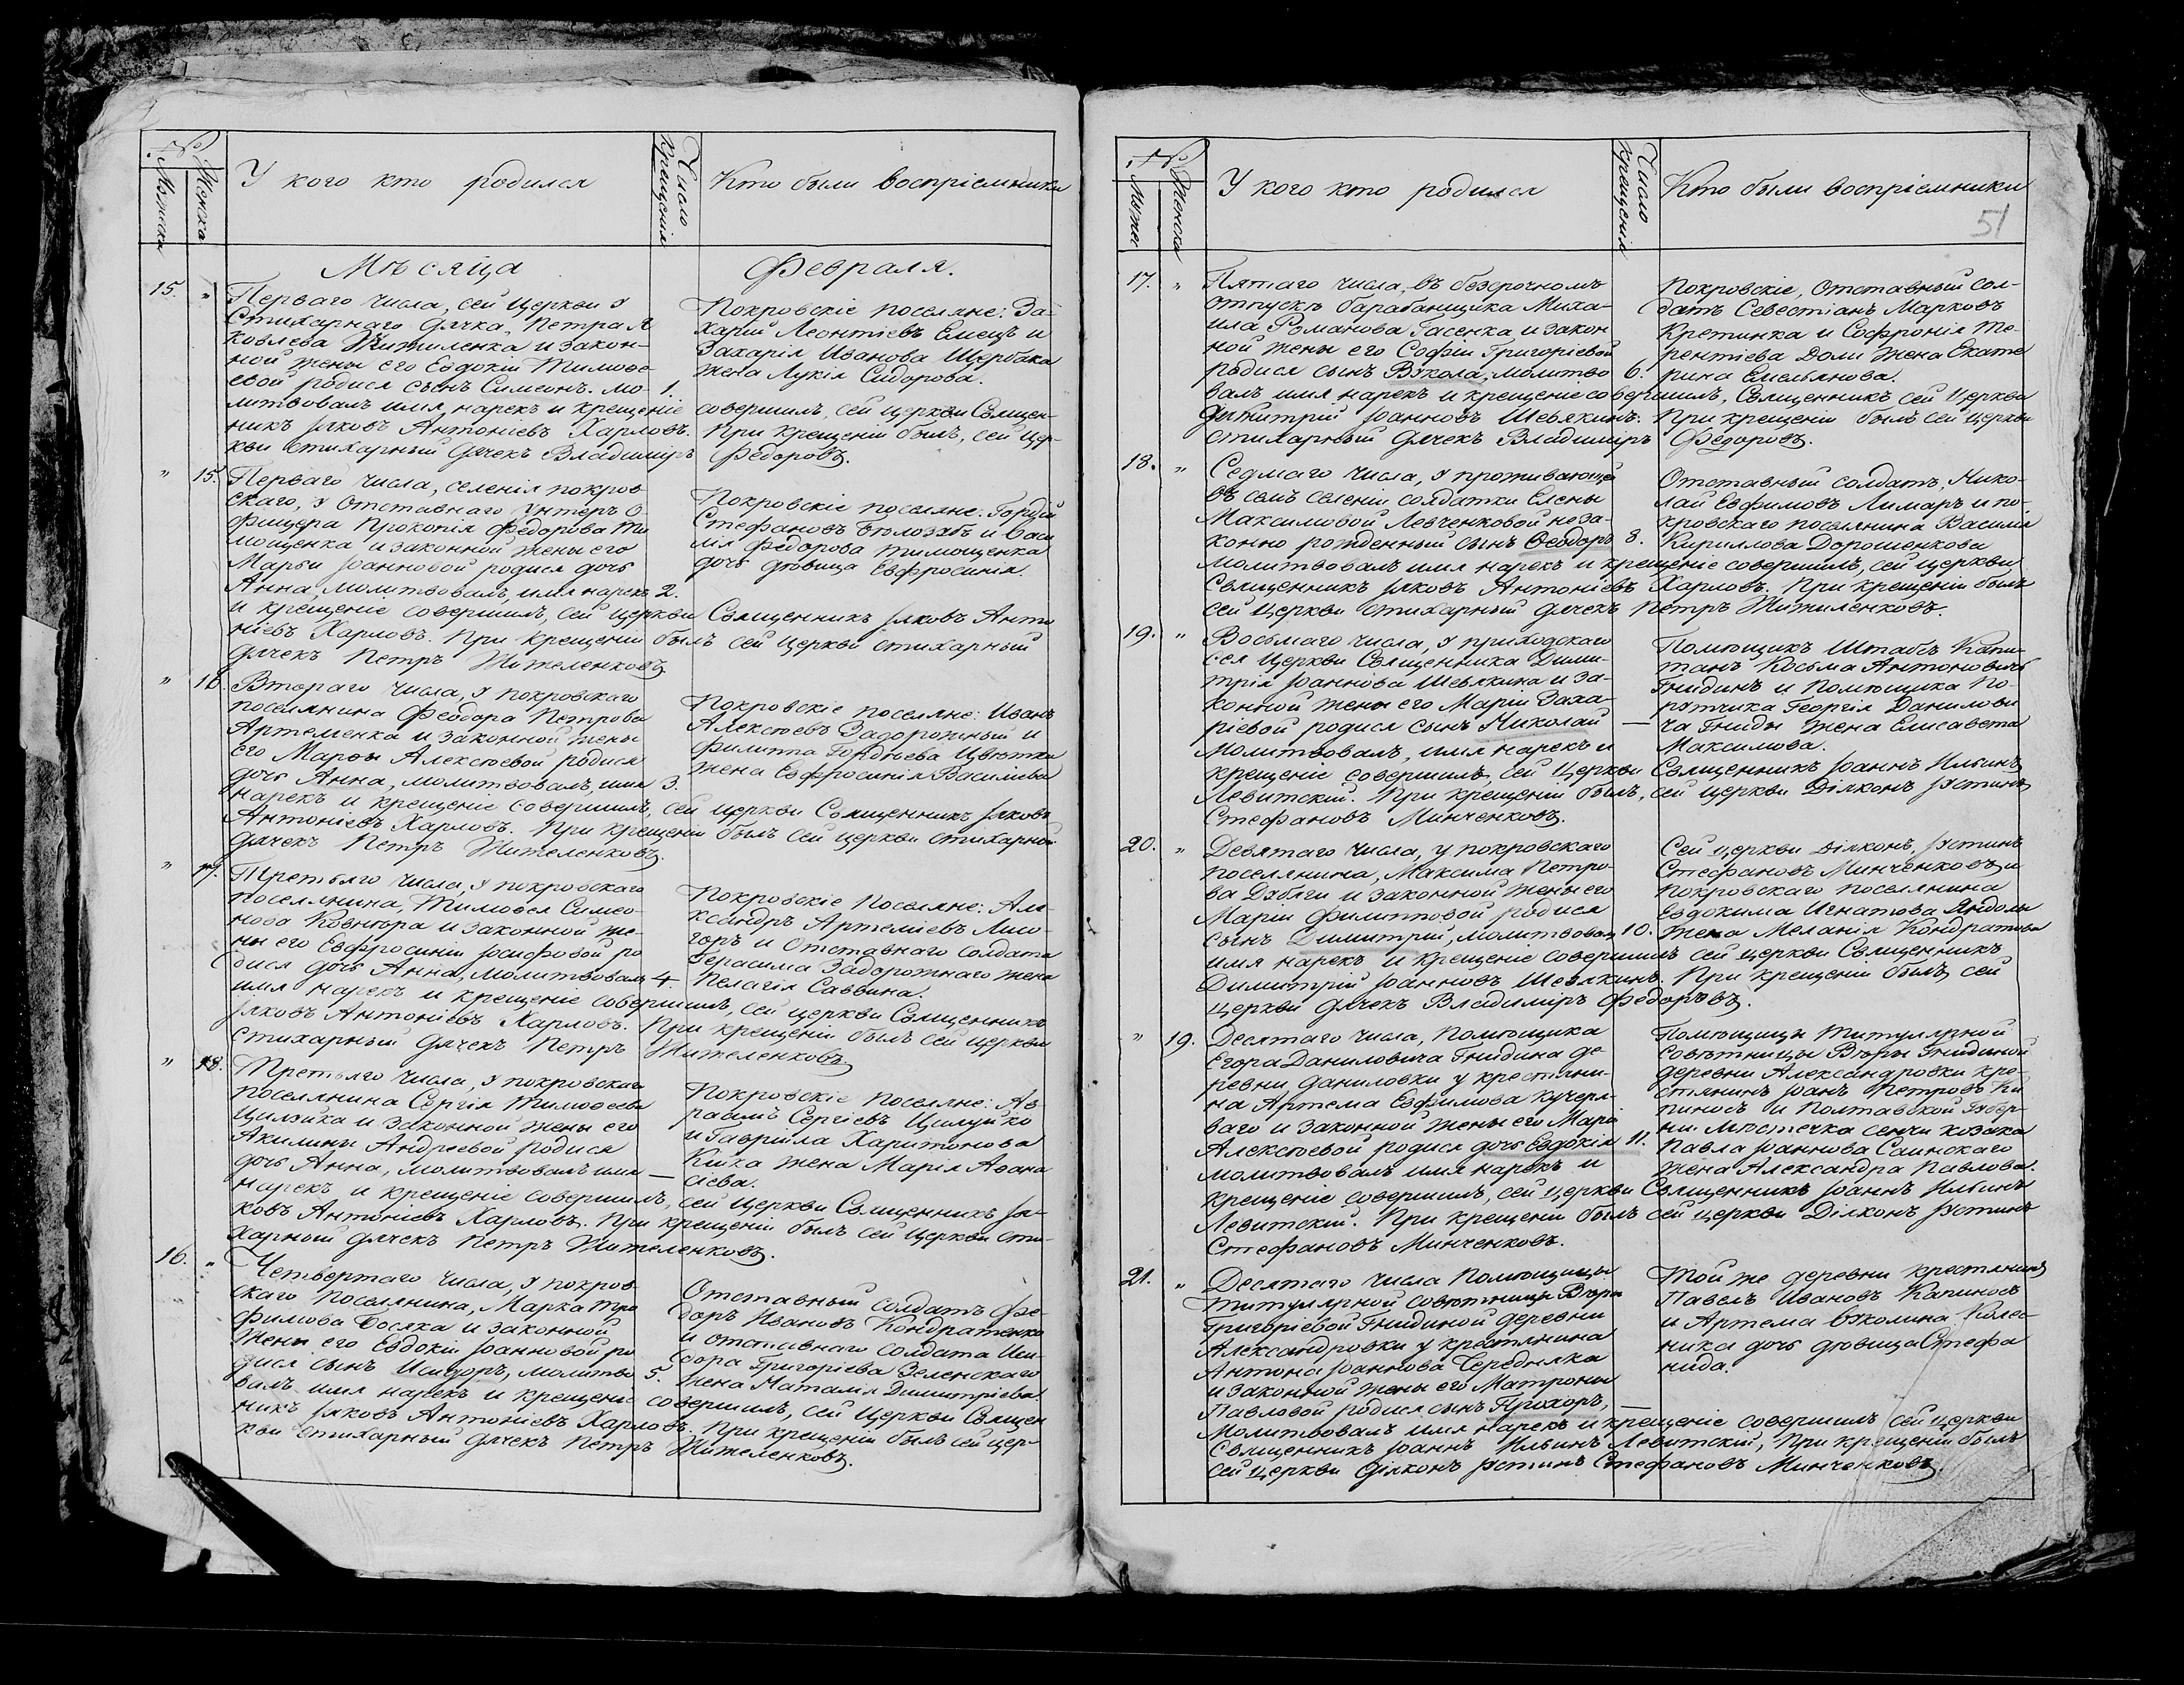 №
Мужска
Женска
У кого кто родился
Число крещенія
Кто были воспріемники
Мѣсяца Февраля.
15. "
Перваго числа, сей Церкви у
Стихарнаго дячка, Петра Я
ковлева Жителенка и закон-
ной жены его Евдокіи Тимофе
евой родися сынъ Симеонъ. мо- 1.
литвовалъ имя нарекъ и крещеніе совершилъ, сей церкви Священ-
никъ Іяковъ Антоніевъ Харловъ. При крещеніи былъ, сей цер-
кви стихарный дячекъ Владиміръ Федоровъ.
Покровскіе поселяне: За-
харій Леонтіевъ Емецъ и
Захарія Иванова Щербака
жена Лукія Сидорова.
" 15.
Перваго числа, селенія покров
скаго, у отставнаго унтеръ о-
фицера Прокопія Федорова Ти
мощенка и законной жены его
Марьи Іоанновой родися дочь
Анна, молитвовалъ, имя нарекъ 2.
и крещеніе совершилъ, сей церкви Священникъ Іяковъ Анто
ніевъ Харловъ. При крещеніи былъ сей церкви стихарный
дячекъ Петръ Жителенковъ.
Покровскіе поселяне: Гордій
Стефановъ Бѣлозабъ и Васи
лія Федорова Тимощенка
дочь дѣвица Евфросинія.
" 16.
Втораго числа, у покровскаго
поселянина Феодора Петрова
Артеменка и законной жены
его Марѳы Алексѣевой родися
дочь Анна, молитвовалъ, имя 3.
нарекъ и крещеніе совершилъ, сей церкви Священникъ Іяковъ
Антоніевъ Харловъ. При крещеніи былъ сей церкви стихарной
дячекъ Петръ Жителенковъ.
Покровскіе поселяне: Иванъ
Алексѣевъ Задорожный и
Филиппа Гордѣева Цвѣтки
жена Евфросинія Василиева
" 17.
Третьяго числа, у покровскаго
поселянина, Тимоѳея Симео-
нова Ковнѣра и законной же-
ны его Евфросиніи Іосифовой ро
дися дочь Анна, молитвовалъ 4.
имя нарекъ и крещеніе совершилъ, сей церкви Священникъ
Іяковъ Антоніевъ Харловъ. При крещеніи былъ сей церкви
стихарный дячекъ Петръ Жителенковъ.
Покровскіе поселяне: Але
ксандръ Артеміевъ Лисо-
горъ и отставнаго солдата
Герасима Задорожнаго жена
Пелагія Саввина.
" 18.
Третьяго числа, у покровскаго
поселянина Сергія Тимоѳеева
Цилуйка и законной жены его
Акилины Андреевой родися
дочь Анна, молитвовалъ имя —
нарекъ и крещеніе совершилъ, сей церкви Священникъ Ія-
ковъ Антоніевъ Харловъ. При крещеніи былъ сей церкви сти-
харный дячекъ Петръ Жителенковъ.
Покровскіе поселяне: Ав-
раамъ Сергіевъ Цилуйко
и Гавріила Харитонова
Кишка жена Марія Аѳана
сіева.
16. "
Четвертаго числа, у покров
скаго поселянина, Марка Тро
фимова Босяка и законной
жены его Евдокіи Іоанновой ро
дися сынъ Исидоръ, молитво 5.
валъ имя нарекъ и крещеніе совершилъ, сей Церкви Священ
никъ Іяковъ Антоніевъ Харловъ. При крещеніи былъ сей цер-
кви стихарный дячекъ Петръ Жителенковъ.
Отставный солдатъ Фе-
доръ Ивановъ Кондратенко
и отставнаго солдата Иси-
дора Григоріева Зеленскаго
жена Наталія Димитріева.
№
Мужес
Женска
У кого кто родился
Число крещенія
Кто были воспріемники
51
17. "
Пятаго числа, въ безсрочномъ
отпуску барабанщика Миха-
ила Романова Гасенка и закон
ной жены его Софіи Григоріевой
родися сынъ Вукола, молитво 6.
валъ имя нарекъ и крещеніе совершилъ, Священникъ сей Церкви
Димитрій Іоанновъ Шевякинъ. При крещеніи былъ сей церкви
стихарный дячекъ Владиміръ Федоровъ.
Покровскіе, отставный сол-
датъ Севестіанъ Марковъ
Кретинка и Софронія Те-
рентіева Доли жена Екате
рина Емельянова.
18. "
Седмаго числа, у проживающей
въ семъ селеніи солдатки Елены
Максимовой Левченковой неза-
конно рожденный сынъ Ѳеодоръ 8.
молитвовалъ имя нарекъ и крещеніе совершилъ, сей церкви
Священникъ Іяковъ Антоніевъ Харловъ. При крещеніи былъ
сей церкви стихарный дячекъ Петръ Жителенковъ.
Отставный солдатъ, Нико-
лай Евфимовъ Лимаръ и по-
кровскаго поселянина Василія
Кириллова Дорошенкова
19. "
Восьмаго числа, у приходскаго
сея Церкви Священника Дими-
трія Іоаннова Шевякина и за-
конной жены его Маріи Заха-
ріевой родися сынъ Николай —
молитвовалъ, имя нарекъ и
крещеніе совершилъ, сей Церкви Священникъ Іоаннъ Ильинъ
Левитскій. При крещеніи былъ, сей церкви Діяконъ Іустинъ
Стефановъ Минченковъ.
Помѣщикъ Штабсъ Капи-
танъ Косьма Антоновичъ
Гнидинъ и Помѣщика По-
рутчика Георгія Данилови
ча Гниды жена Елисавета
Максимова.
20. "
Девятаго числа, у покровскаго
поселянина, Максима Петро-
ва Дзюбги и законной жены его
Маріи Филипповой родися
сынъ Димитрій, молитвовалъ 10.
имя нарекъ и крещеніе совершилъ сей церкви Священникъ
Димитрій Іоанновъ Шевякинъ. При крещеніи былъ, сей
церкви дячекъ Владиміръ Федоровъ.
Сей церкви Діяконъ, Іустинъ
Стефановъ Минченковъ и
покровскаго поселянина
Евдокима Игнатова Яндолы
жена Меланія Кондратова
" 19.
Десятаго числа, Помѣщика
Егора Даниловича Гнидина де-
ревни, Даниловки у крестьяни-
на Артема Евфимова Кучеря-
ваго и законной жены его Маріи
Алексѣевой родися дочь Евдокія 11.
молитвовалъ имя нарекъ и
крещеніе совершилъ, сей церкви Священникъ Іоаннъ Ильинъ
Левитскій. При крещеніи былъ сей церкви Діяконъ Іустинъ
Стефановъ Минченковъ.
Помѣщицы Титулярной
совѣтницы Вѣры Гнидиной
деревни Александровки кре-
стьянинъ Іоанъ Петровъ Ка
пиносъ и Полтавской Губер-
ніи. мѣстечка Сенчи козака
Павла Іоаннова Саинскаго
жена Александра Павлова.
21. "
Десятаго числа Помѣщицы
титулярной совѣтницы Вѣры
Григоріевой Гнидиной деревни
Александровки у крестьянина
Антона Іоаннова Чередняка
и законной жены его Матроны
Павловой родися сынъ Прохоръ, —
молитвовалъ имя нарекъ и крещеніе совершилъ сей церкви
Священникъ Іоаннъ Ильинъ Левитскій, При крещеніи былъ
сей церкви Діяконъ Іустинъ Стефановъ Минченковъ.
Той же деревни крестьянинъ
Павелъ Ивановъ Капиносъ
и Артема Вуколина Колес-
ника дочь дѣвица Стефа
нида.